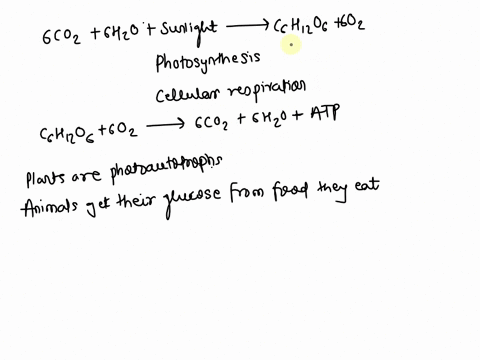 6CO2 + 6H2O + Sunlight → C6H12O6 + 6O2
Photosynthesis
Cellular respiration
C6H12O6 + 6O2 → 6CO2 + 6H2O + ATP
Plants are photoautotrophs
Animals get their glucose from food they eat